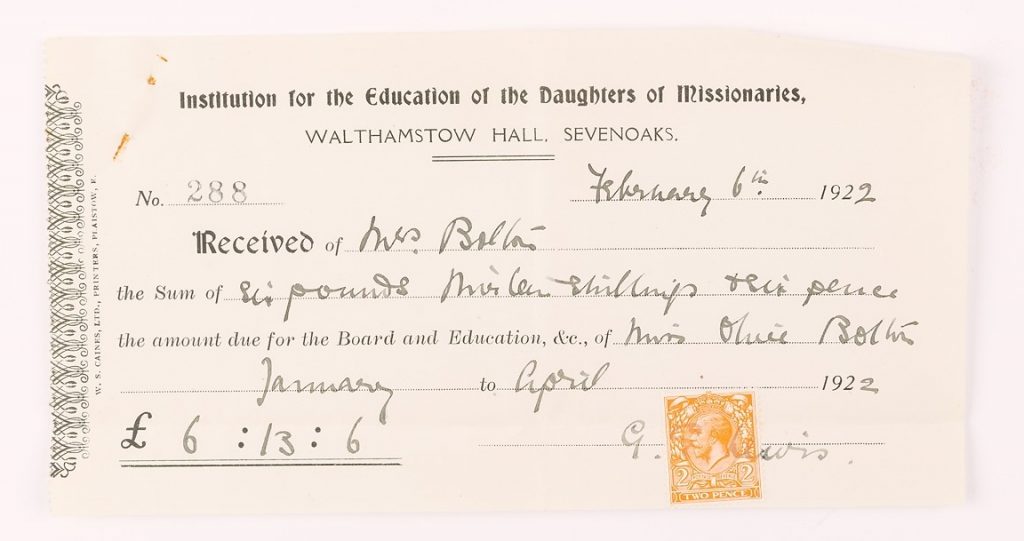 Institution for the Education of the Daughters of Missionaries,
WALTHAMSTOW HALL, SEVENOAKS.
No. 288
February 6th 1922
Received of Mrs. Bolton
the Sum of Six pounds shillings & six pence
the amount due for the Board and Education, &c., of Miss Olive Bolton
January to April 1922
£ 6 : 13 : 6
G.
2 2
TWO PENCE
W. S. CAINES, LTD., PRINTERS, PLAISTOW, E.